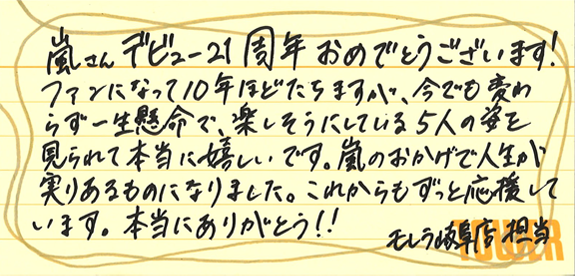 嵐さん デビュー21周年 おめでとうございます!
ファンになって10年ほどたちますが、今でも変わ
らず一生懸命で、楽しそうにしている5人の姿を
見られて本当に嬉しいです。嵐のおかげで人生が
実りあるものになりました。これからもずっと応援して
います。本当にありがとう!!
モレラ岐阜店 担当
TOWER